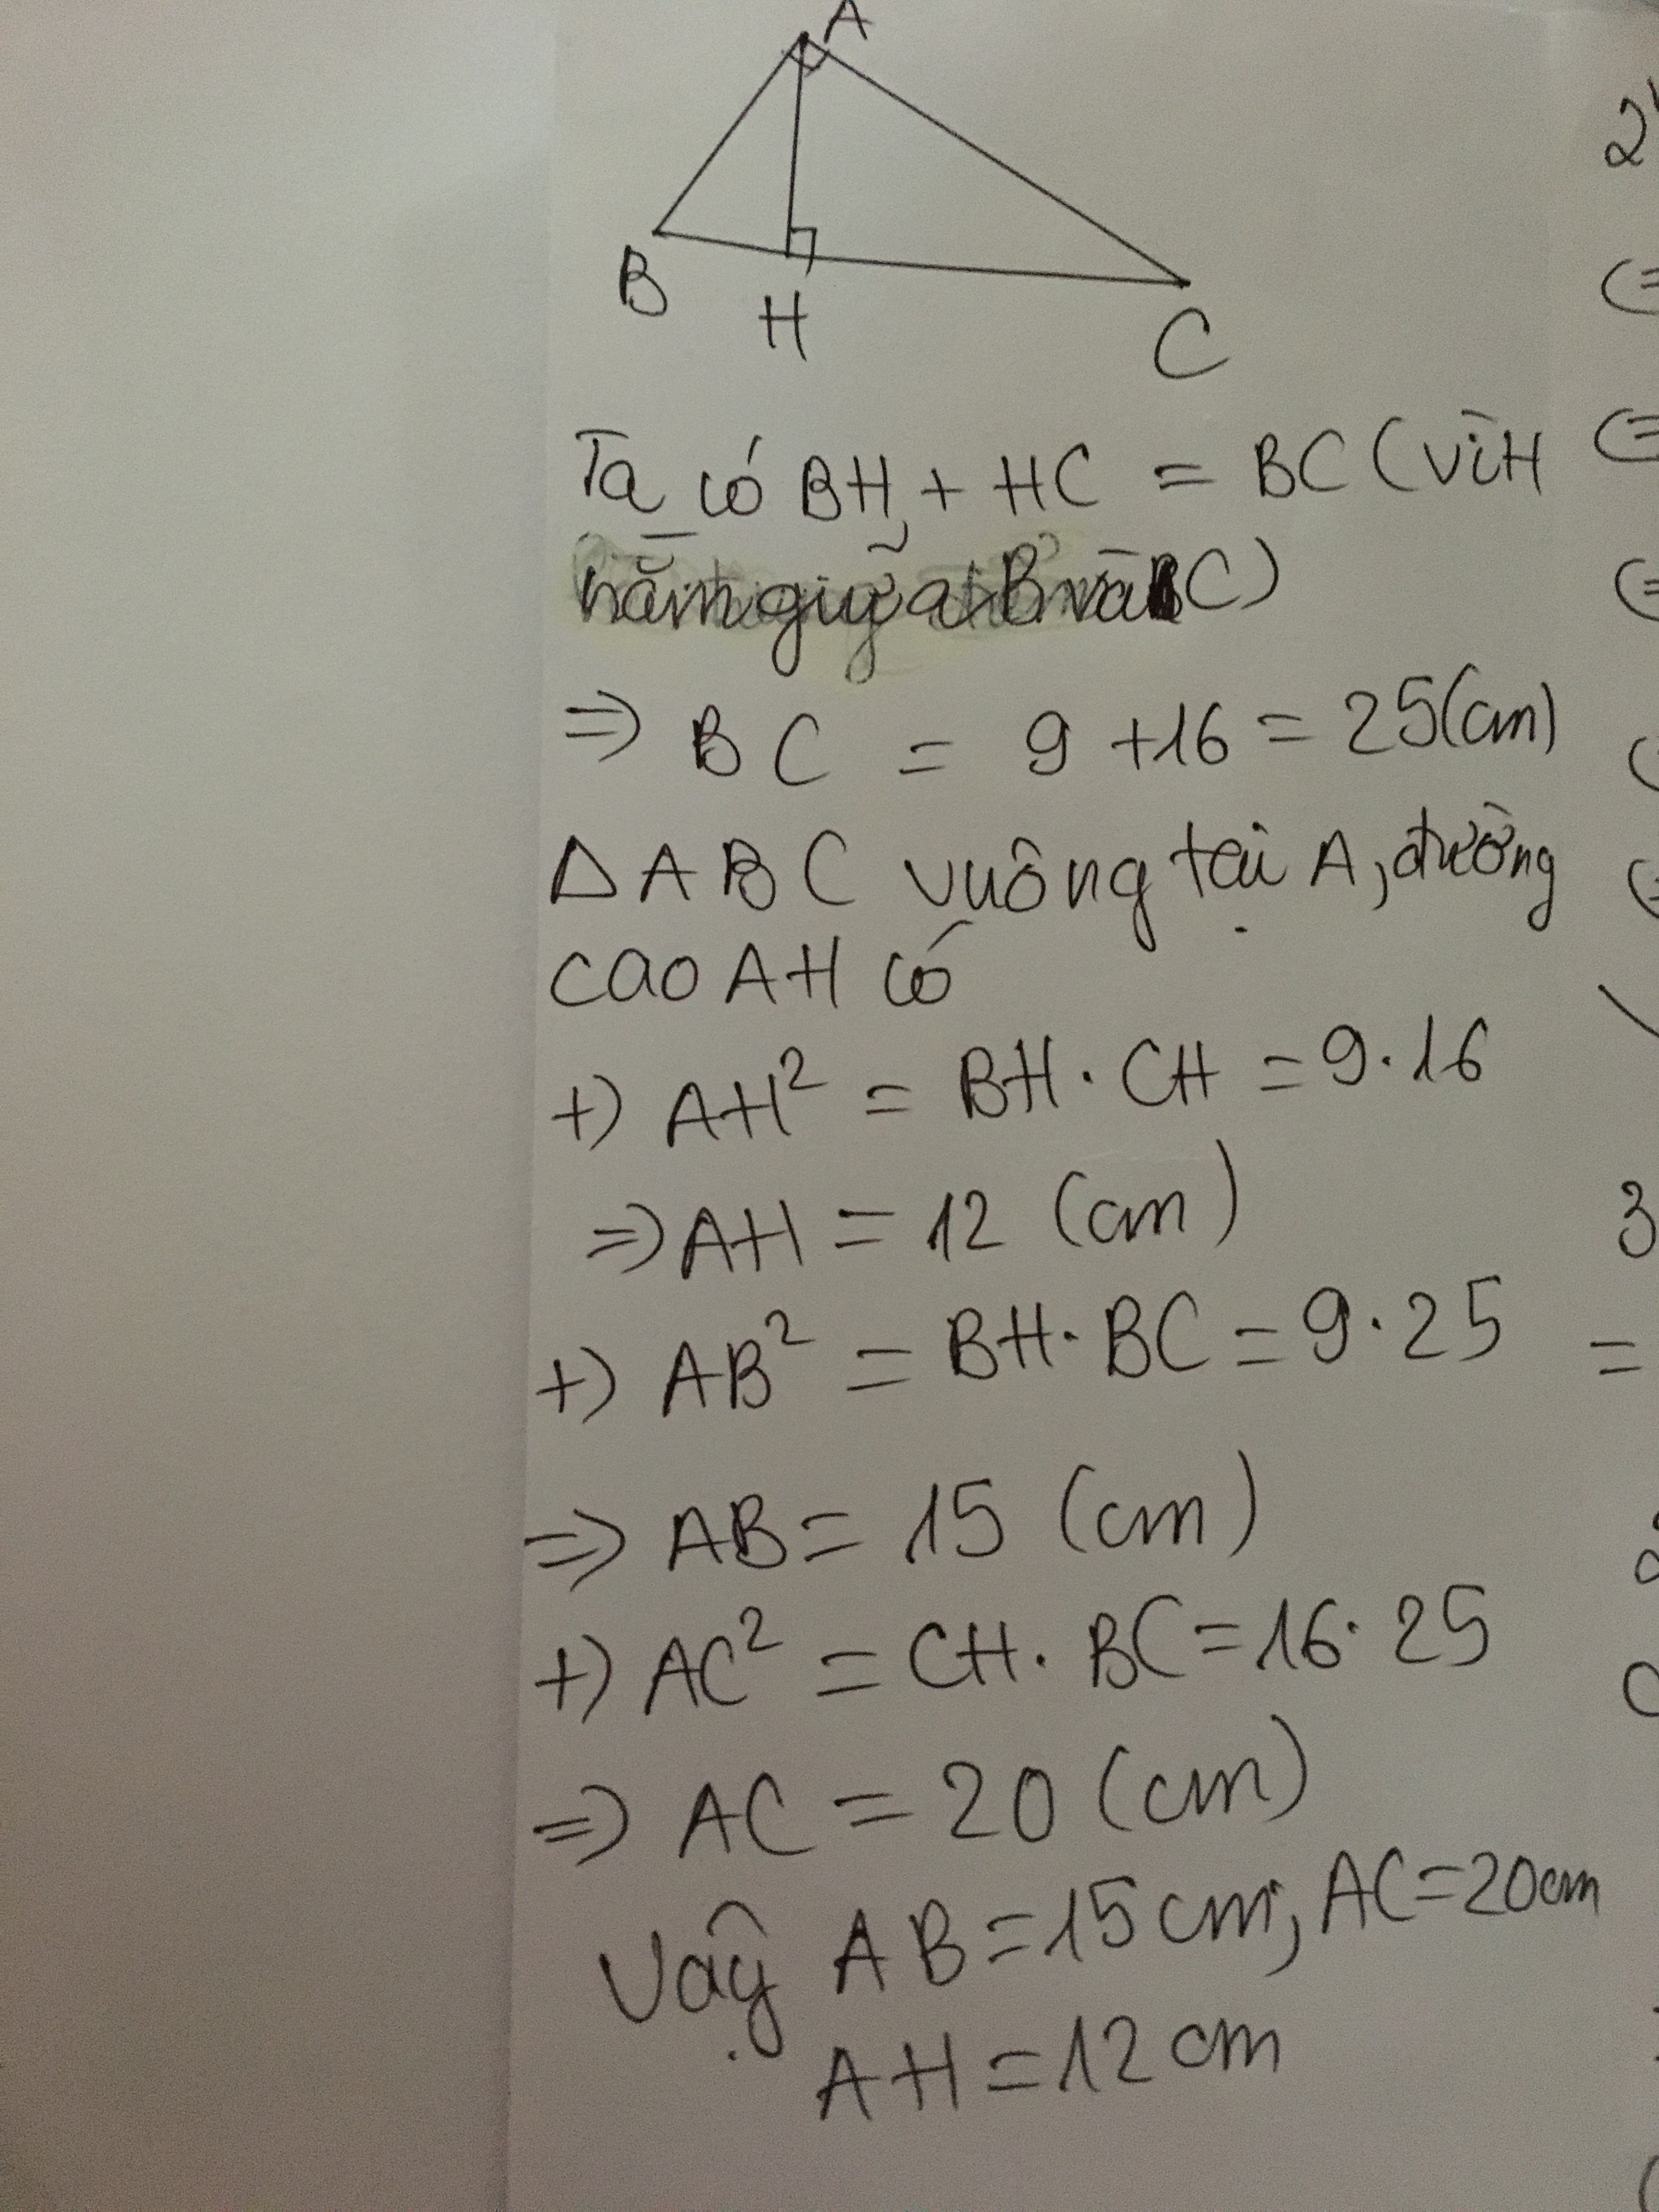 A
B
H
C
Ta có BH + HC = BC (vì H
nằm giữa B và C)
=> BC = 9 + 16 = 25 (cm)
Δ ABC vuông tại A, đường
cao AH có
+) AH² = BH · CH = 9 · 16
=> AH = 12 (cm)
+) AB² = BH · BC = 9 · 25
=> AB = 15 (cm)
+) AC² = CH · BC = 16 · 25
=> AC = 20 (cm)
Vậy AB = 15 cm, AC = 20 cm
AH = 12 cm
2
3
=